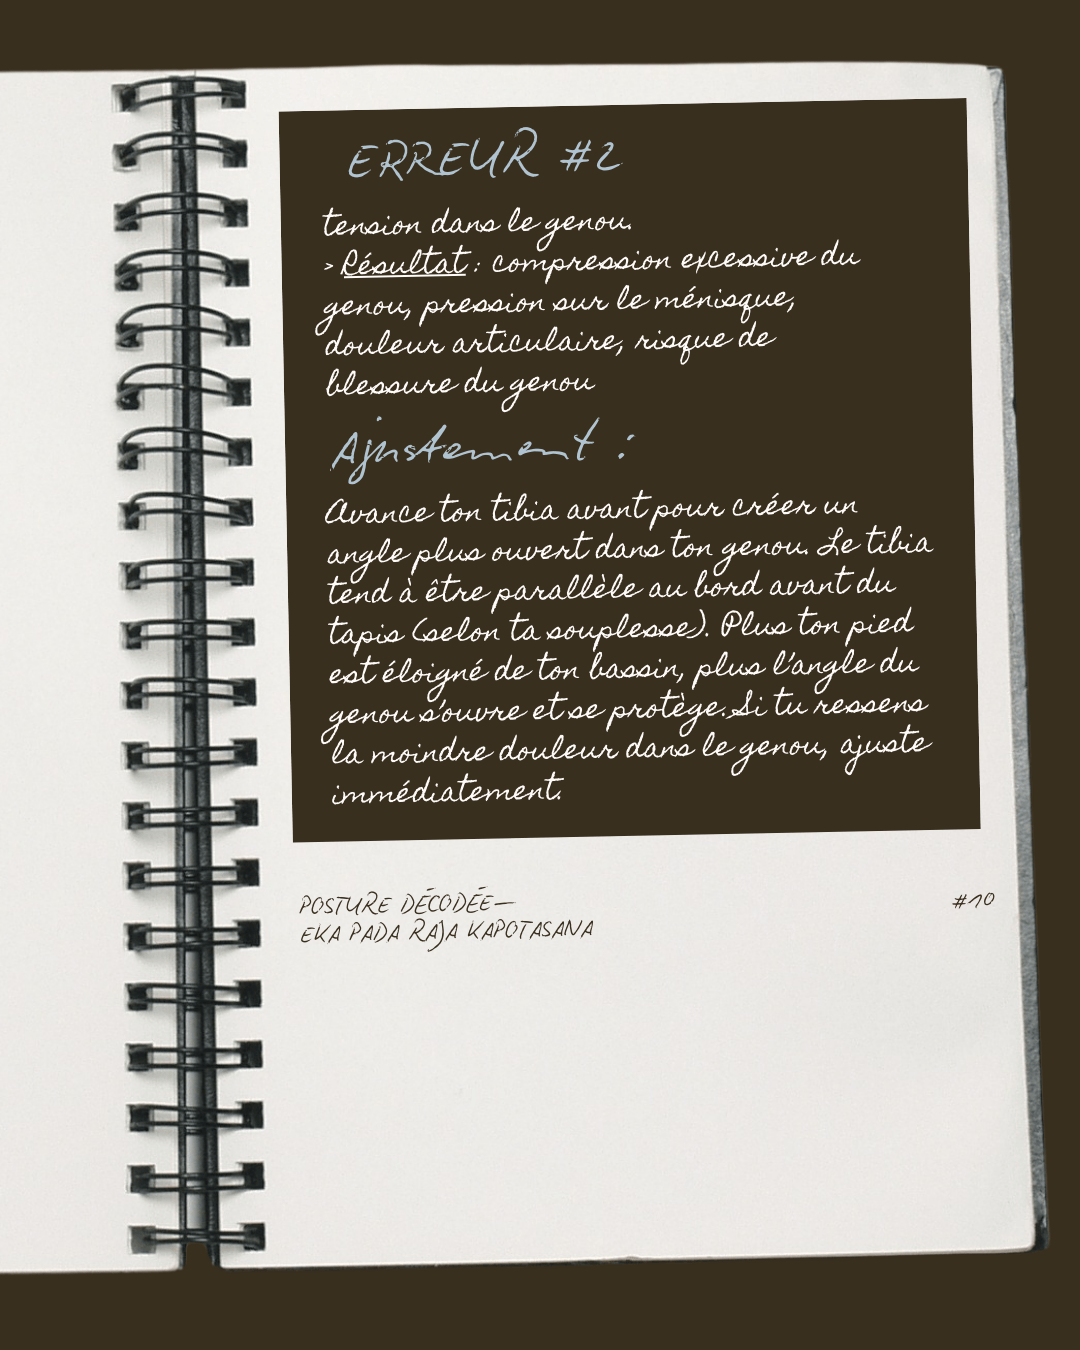 ERREUR #2
tension dans le genou.
> Résultat : compression excessive du
genou, pression sur le ménisque,
douleur articulaire, risque de
blessure du genou
Ajustement :
Avance ton tibia avant pour créer un
angle plus ouvert dans ton genou. Le tibia
tend à être parallèle au bord avant du
tapis (selon ta souplesse). Plus ton pied
est éloigné de ton bassin, plus l'angle du
genou s'ouvre et se protège. Si tu ressens
la moindre douleur dans le genou, ajuste
immédiatement.
POSTURE DÉCODÉE—
EKA PADA RAJA KAPOTASANA
#10